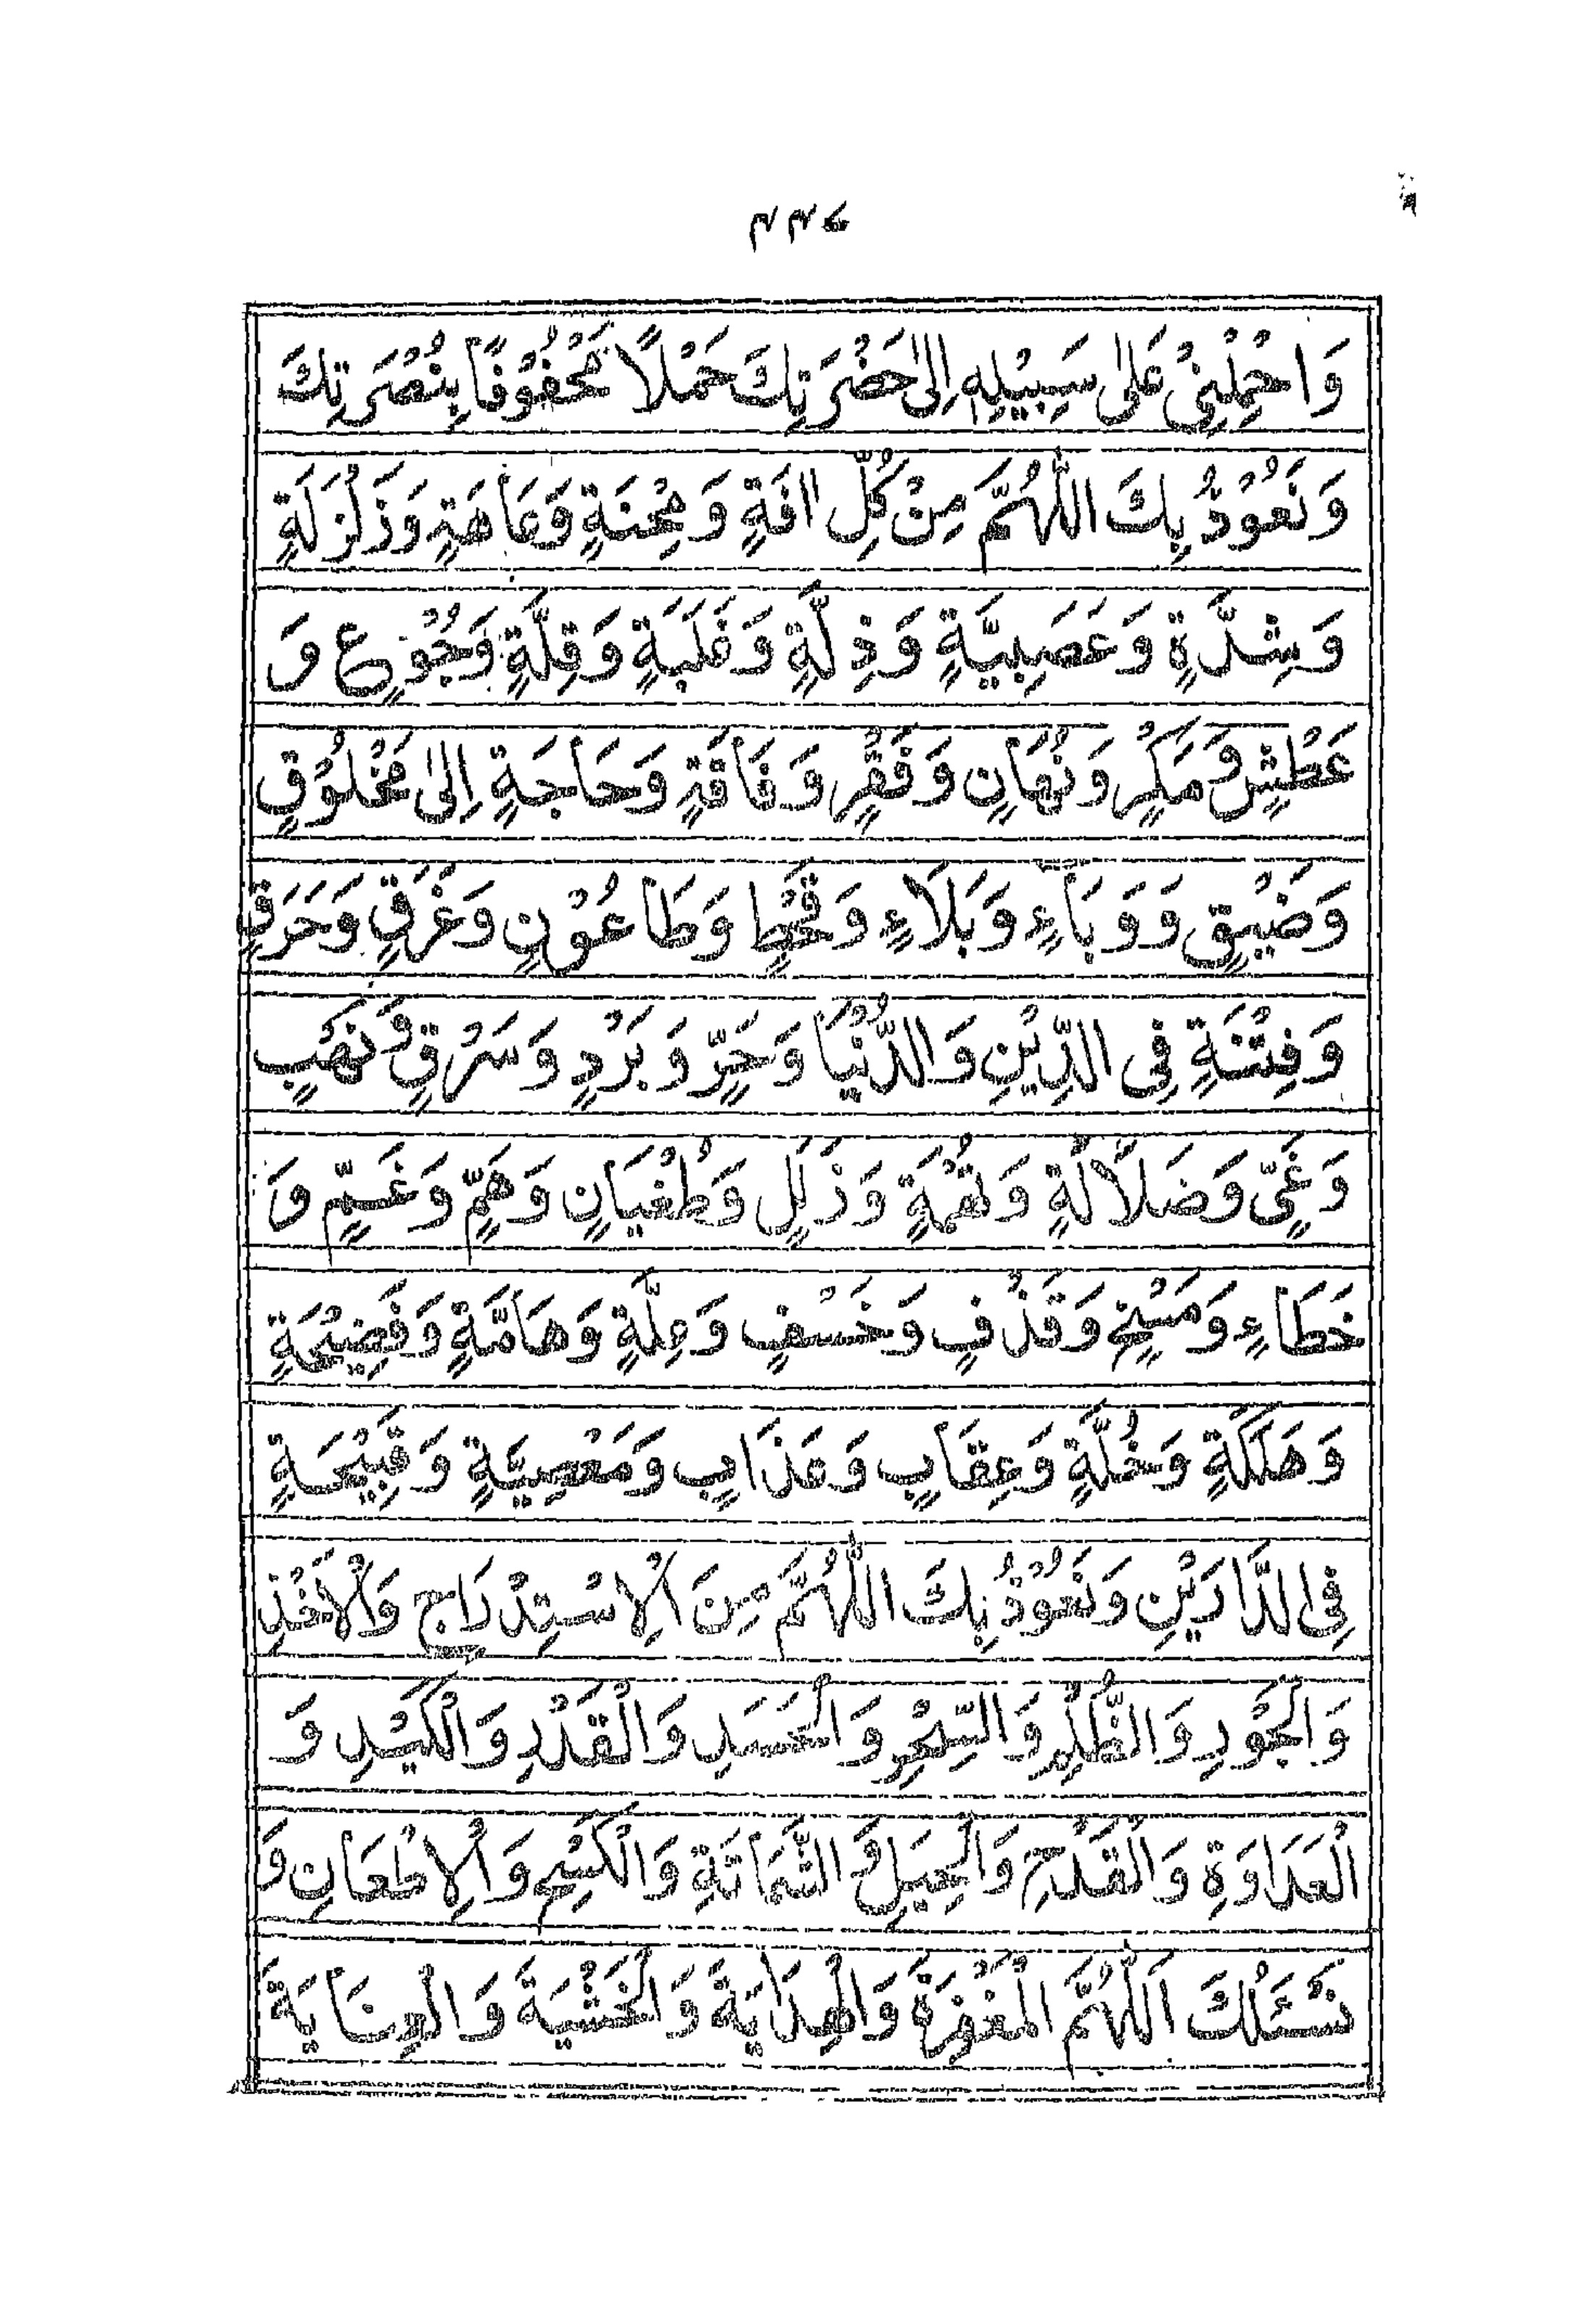 وَاحْمِلْنِيْ عَلٰى سَبِيْلِهٖ اِلٰى حَضْرَتِكَ حَمْلًا مَّحْفُوْفًا بِنُصْرَتِكَ
وَنَعُوْذُ بِكَ اللّٰهُمَّ مِنْ كُلِّ اٰفَةٍ وَمِحْنَةٍ وَعَاهَةٍ وَذَلْزَلَةٍ
وَشِدَّةٍ وَعَصَبِيَّةٍ وَذِلَّةٍ وَغَلَبَةٍ وَقِلَّةٍ وَجُوْعٍ وَ
عَطْشٍ وَّ مَكْرٍ وَنُهَانٍ وَفَقْرٍ وَفَاقَةٍ وَحَاجَةٍ اِلٰى مَخْلُوْقٍ
وَضَيْقٍ وَوَبَاءٍ وَبَلَاءٍ وَقَحْطٍ وَطَاعُوْنٍ وَغَرْقٍ وَحَرَقٍ
وَفِتْنَةٍ فِى الدِّيْنِ وَالدُّنْيَا وَحَرٍّ وَبَرْدٍ وَسَرْقٍ وَّ نَهْبٍ
وَغَيٍّ وَضَلَالَةٍ وَتُهْمَةٍ وَزَلَلٍ وَطُغْيَانٍ وَهَمٍّ وَغَمٍّ وَ
خَطَاءٍ وَمَسْخٍ وَقَذْفٍ وَخَسْفٍ وَعِلَّةٍ وَهَامَّةٍ وَفَضِيْحَةٍ
وَهَلَكَةٍ وَخُلَّةٍ وَعِقَابٍ وَعَذَابٍ وَمَعْصِيَةٍ وَقَبِيْحَةٍ
فِى الدَّارَيْنِ وَنَعُوْذُ بِكَ اللّٰهُمَّ مِنَ الْاِسْتِدْرَاجِ وَالْاَخْذِ
وَالْجَوْرِ وَالظُّلْمِ وَالسِّحْرِ وَالْحَسَدِ وَالْغَدْرِ وَالْكَيْدِ وَ
الْعَدَاوَةِ وَالْقَدْحِ وَالْحِيَلِ وَ الشَّمَاتَةِ وَالْكَتْمِ وَالْاِطْعَانِ وَ
نَسْئَلُكَ اَللّٰهُمَّ الْمَغْفِرَةَ وَالْهِدَايَةَ وَالْخَشْيَةَ وَالْعِنَايَةَ